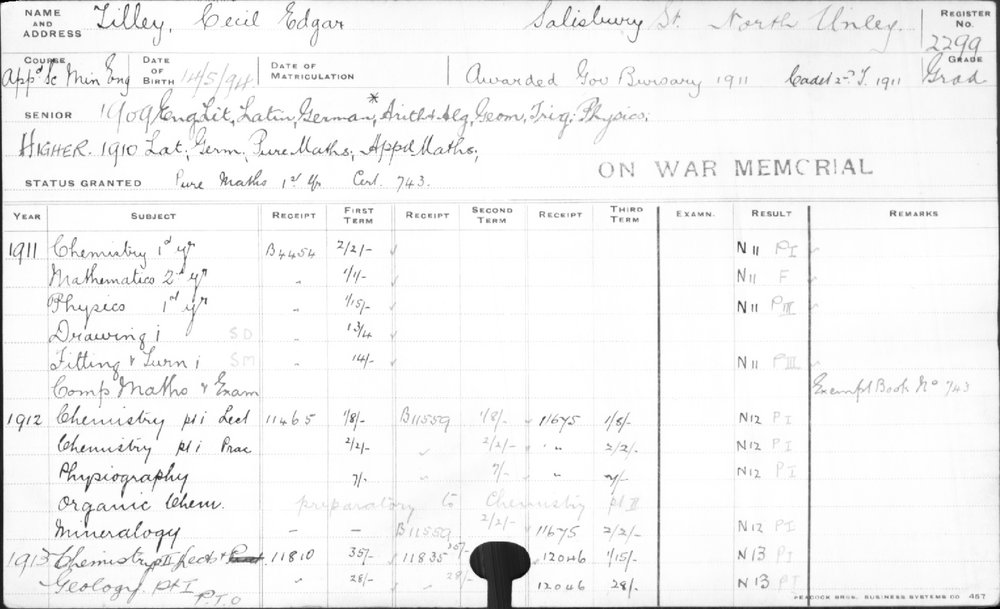 NAME AND ADDRESS Tilley, Cecil Edgar Salisbury St. North Unley. REGISTER No. 2299
COURSE Appd Sc Min Eng DATE OF BIRTH 14/5/94 DATE OF MATRICULATION Awarded Gov Bursary 1911 Cadet 2nd T. 1911 GRADE Grad
SENIOR 1909 Eng Lit, Latin, German*, Arith & Alg, Geom, Trig; Physics;
HIGHER. 1910 Lat; Germ; Pure Maths; Appd Maths;
ON WAR MEMORIAL
STATUS GRANTED Pure Maths 1st Yr Cert. 743.
YEAR SUBJECT RECEIPT FIRST TERM RECEIPT SECOND TERM RECEIPT THIRD TERM EXAMN. RESULT REMARKS
1911 Chemistry 1st yr B4454 2/2/- N11 PI
Mathematics 2nd yr " 1/1/- N11 F
Physics 1st yr " 1/15/- N11 PIII
Drawing i SD 13/4
Fitting & Turn i SM 14/- N11 PIII
Comp Maths & Exam Exempt Book No 743
1912 Chemistry pt i Lect 11465 1/8/- B11559 1/8/- 11675 1/8/- N12 PI
Chemistry pt i Prac " 2/2/- " 2/2/- " " 2/2/- N12 PI
Physiography " 7/- " 7/- " 7/- N12 PI
Organic Chem. preparatory to Chemistry pt II
Mineralogy - - B11559 2/2/- 11675 2/2/- N12 PI
1913 Chemistry pt II Lect & Pract 11810 35/- 11835 35/- 12046 1/15/- N13 PI
Geology. Pt I " 28/- " 28/- 12046 28/- N13 PI
P.T.O
PEACOCK BROS. BUSINESS SYSTEMS CO 467